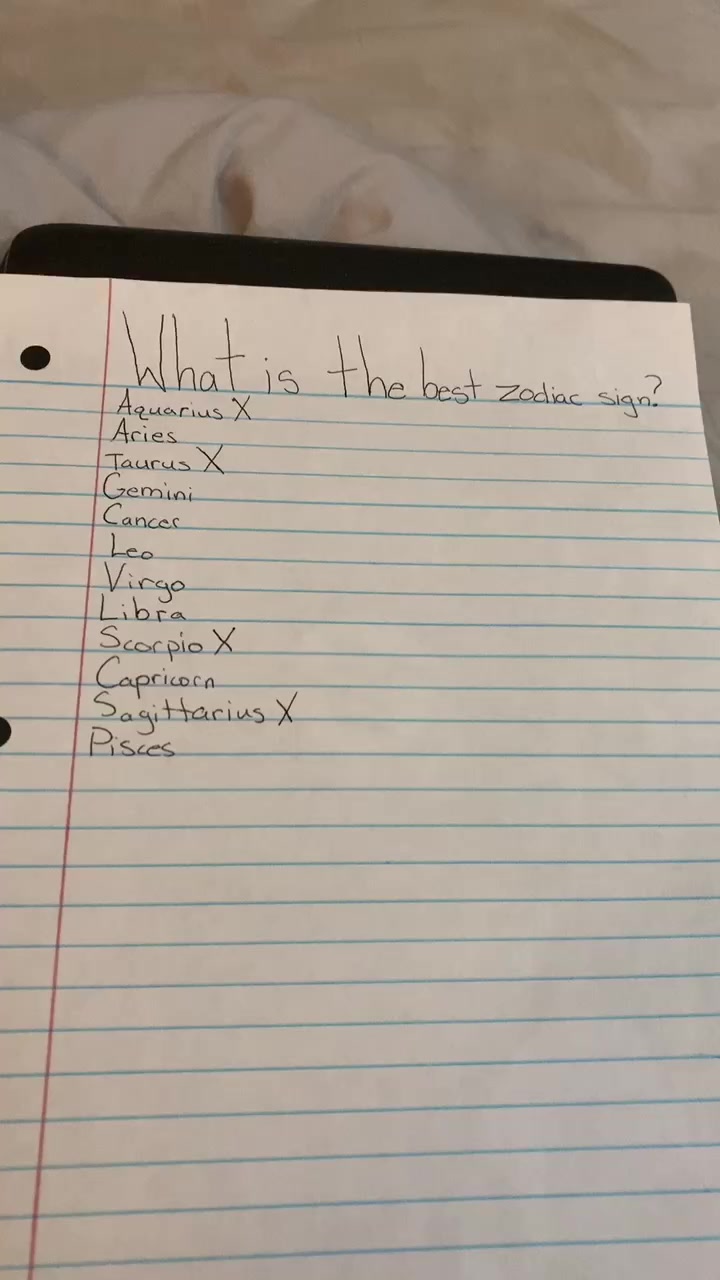 What is the best zodiac sign?
Aquarius X
Aries
Taurus X
Gemini
Cancer
Leo
Virgo
Libra
Scorpio X
Capricorn
Sagittarius X
Pisces